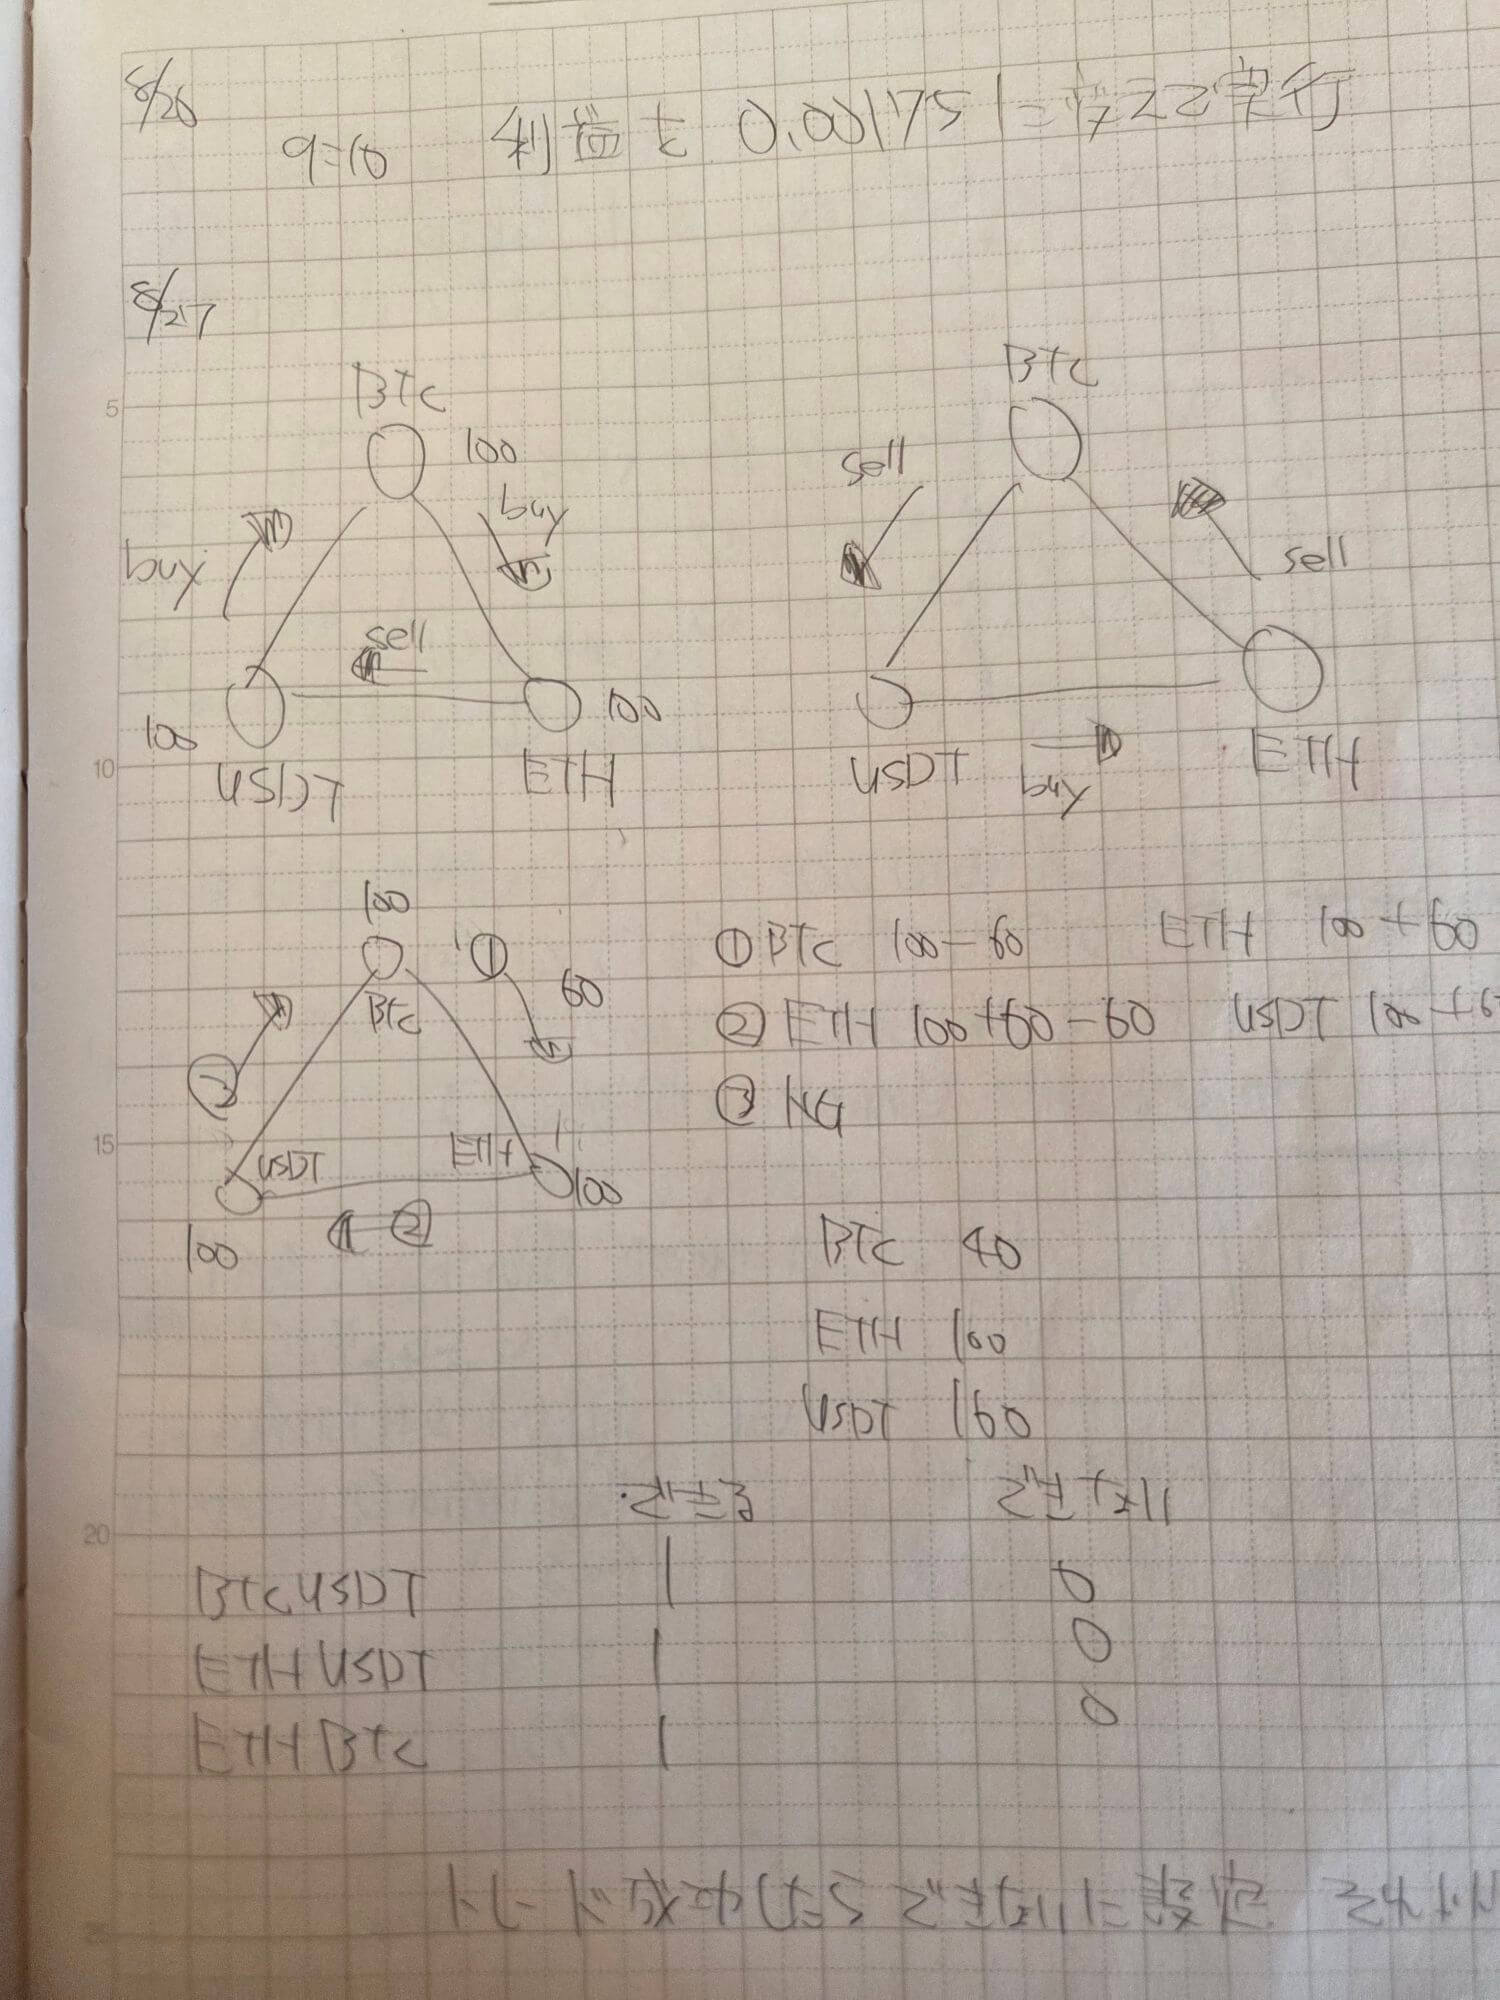 8/26
9=10 利益を 0.001751に変えて実行
8/27
BTC
100
buy
buy
sell
100
100
USDT
ETH
BTC
sell
sell
USDT
buy
ETH
100
BTC
①
60
②
USDT
ETH
100
100
②
① BTC 100-60 ETH 100+60
② ETH 100+60-60 USDT 100+6
③ NG
BTC 40
ETH 100
USDT 160
できる できない
BTCUSDT 1 0
ETHUSDT 1 0
ETHBTC 1 0
5
10
15
20